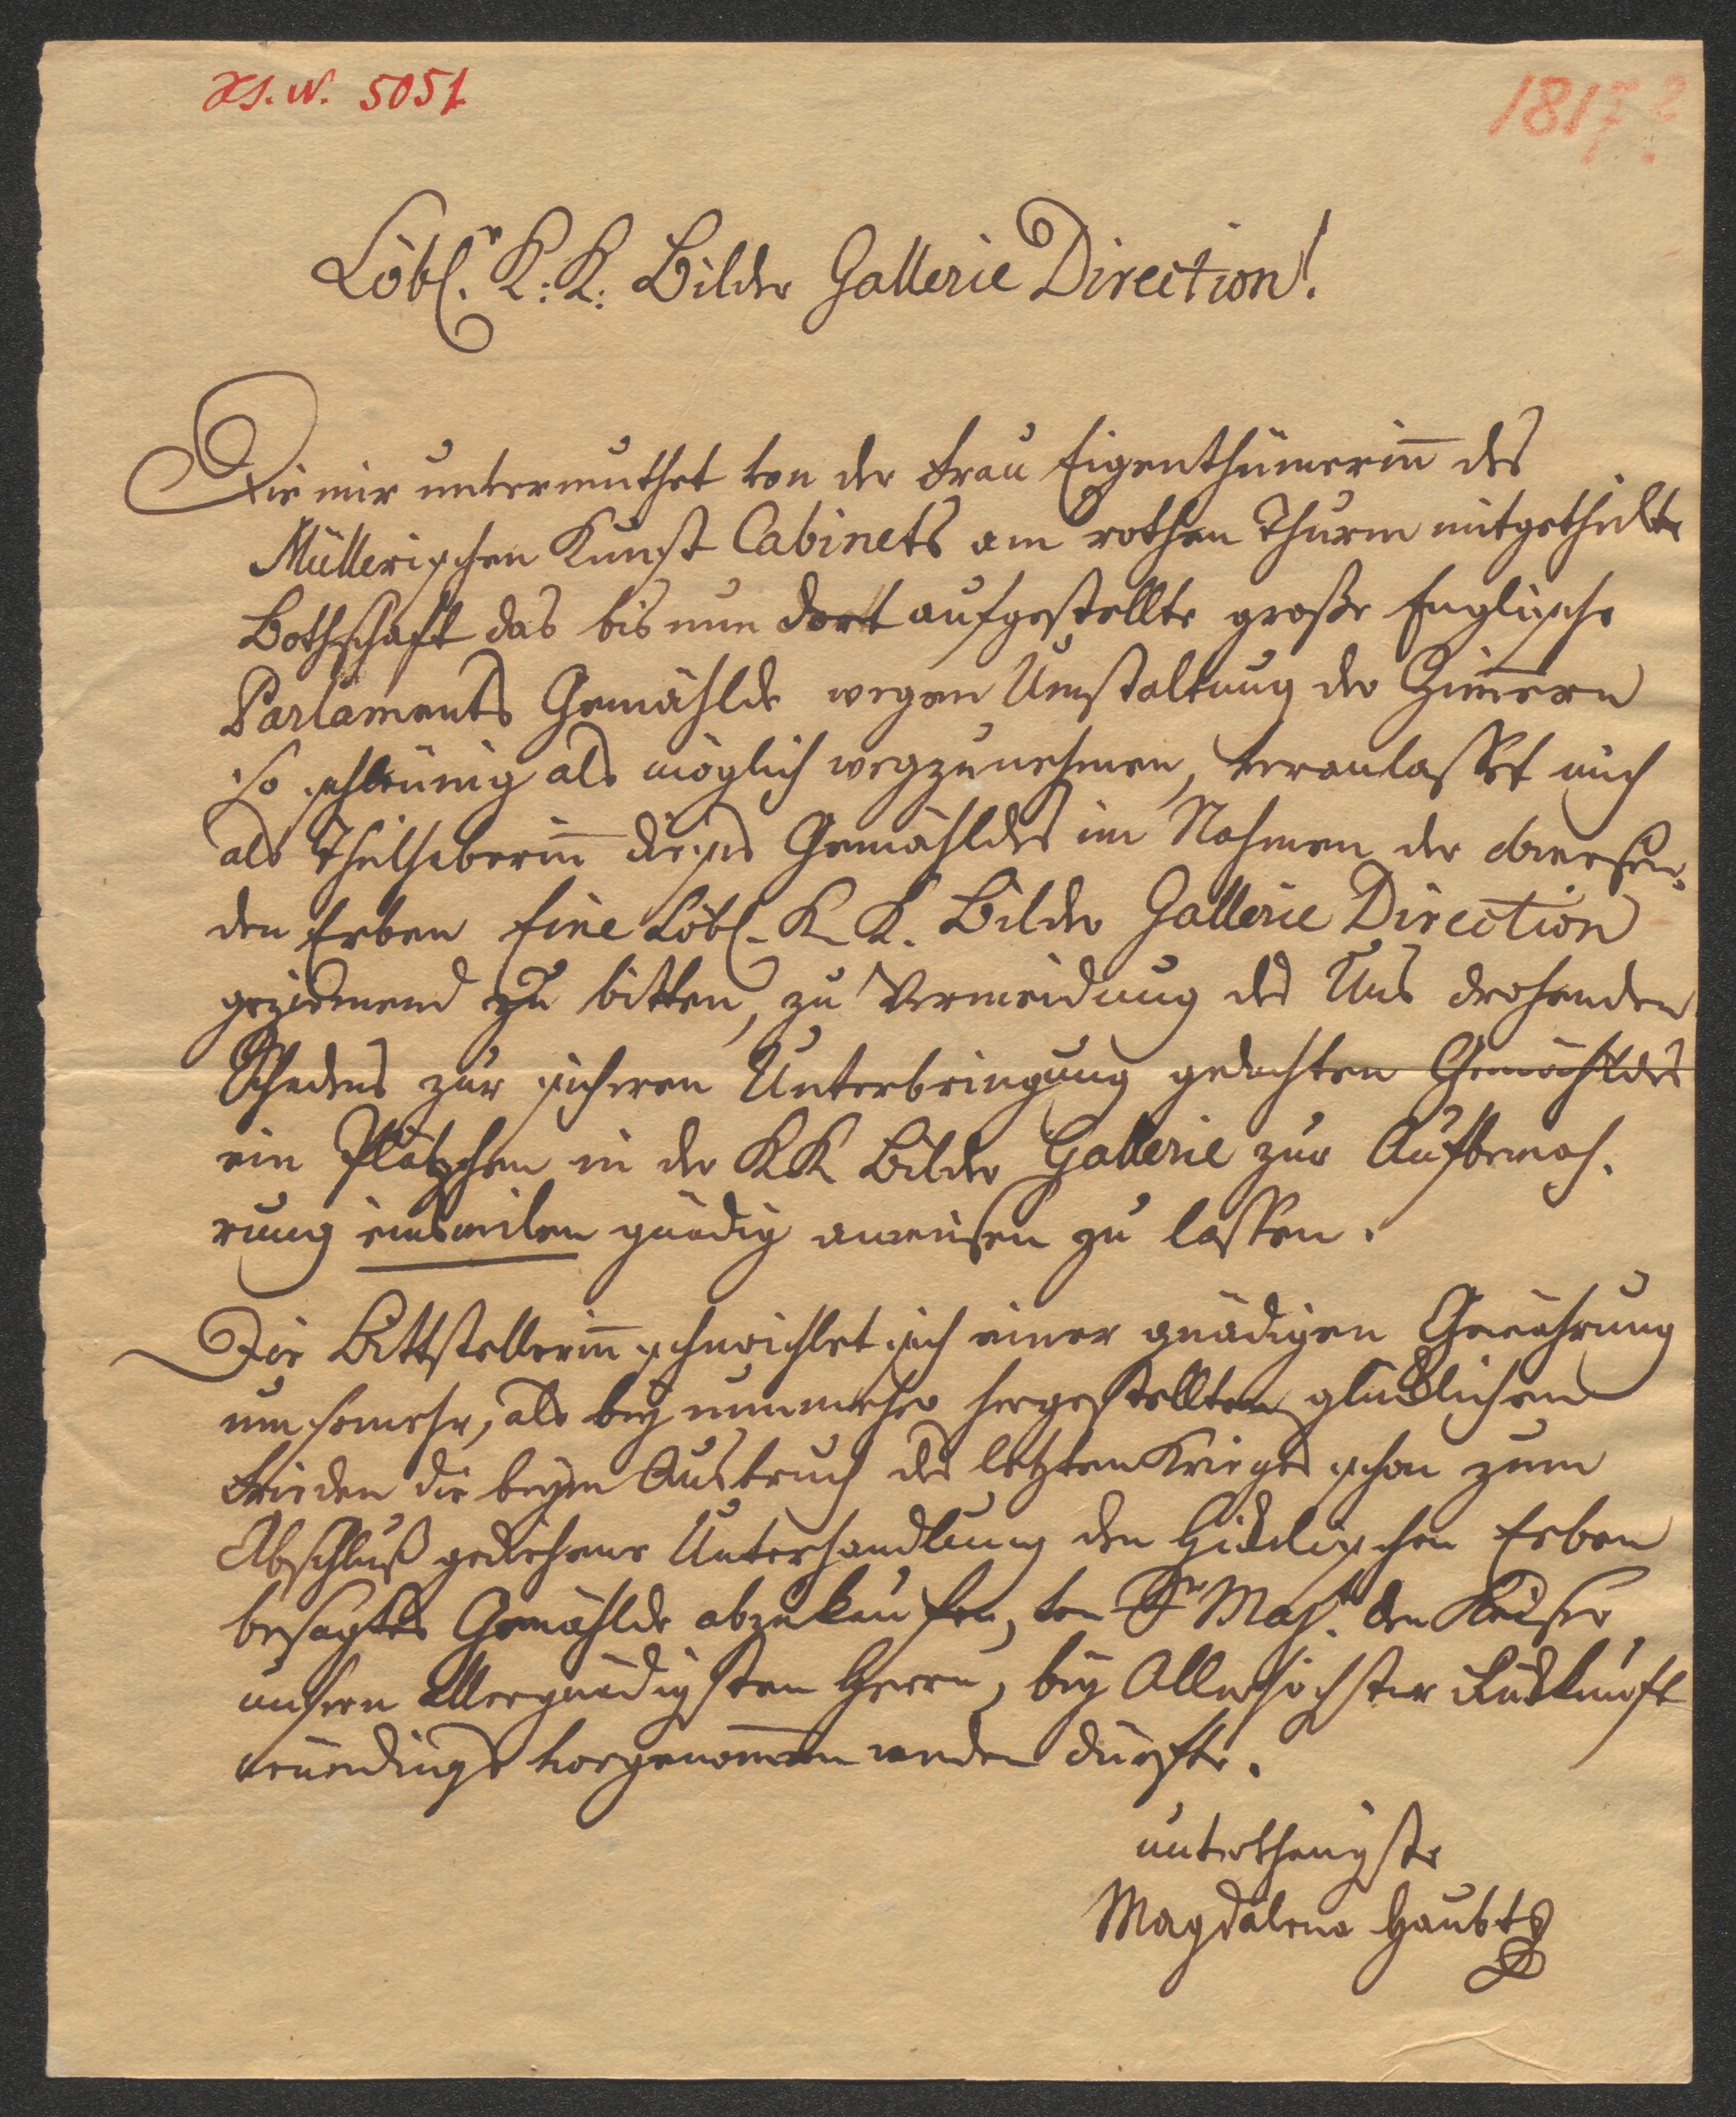 Hs. N. 5051.
1817?
Löbl.e K: K: Bilder Gallerie Direction!
Die mir unvermuthet von der Frau Eigenthümerin̄ des
Müllerischen Kunst Cabinets am rothen Thurm mitgetheilte
Bothschaft das bis nun dort aufgestellte große Englische
Parlaments Gemählde wegen Umstaltung der Zim̄ern
so schleünig als möglich wegzunehmen, veranlasset mich
als Theilhaberin̄ dieses Gemähldes im Nahmen der abwesen-
den Erben Eine Löbl. K. K. Bilder Gallerie Direction
geziemend zu bitten, zu Vermeidung des Uns drohenden
Schadens zur sicheren Unterbringung gedachten Gemähldes
ein Plätzchen in der KK Bilder Gallerie zur Aufbewah-
rung einsweilen gnädig anweisen zu lassen.
Die Bittstellerin̄ schmeichlet sich einer gnädigen Gewährung
um somehr, als bey nunmehro hergestellten glücklichen
Frieden die beym Ausbruch des letzten Krieges schon zum
Abschluß gediehene Unterhandlung den Hickelischen Erben
besagtes Gemählde abzukaufen, von Sr Maj. den Keiser
unsern Allergnädigsten Herrn, bey Allerhöchster Rückkunft
neuerdings vorgenom̄en werden dürfte.
unterthenigste
Magdalena Haubt